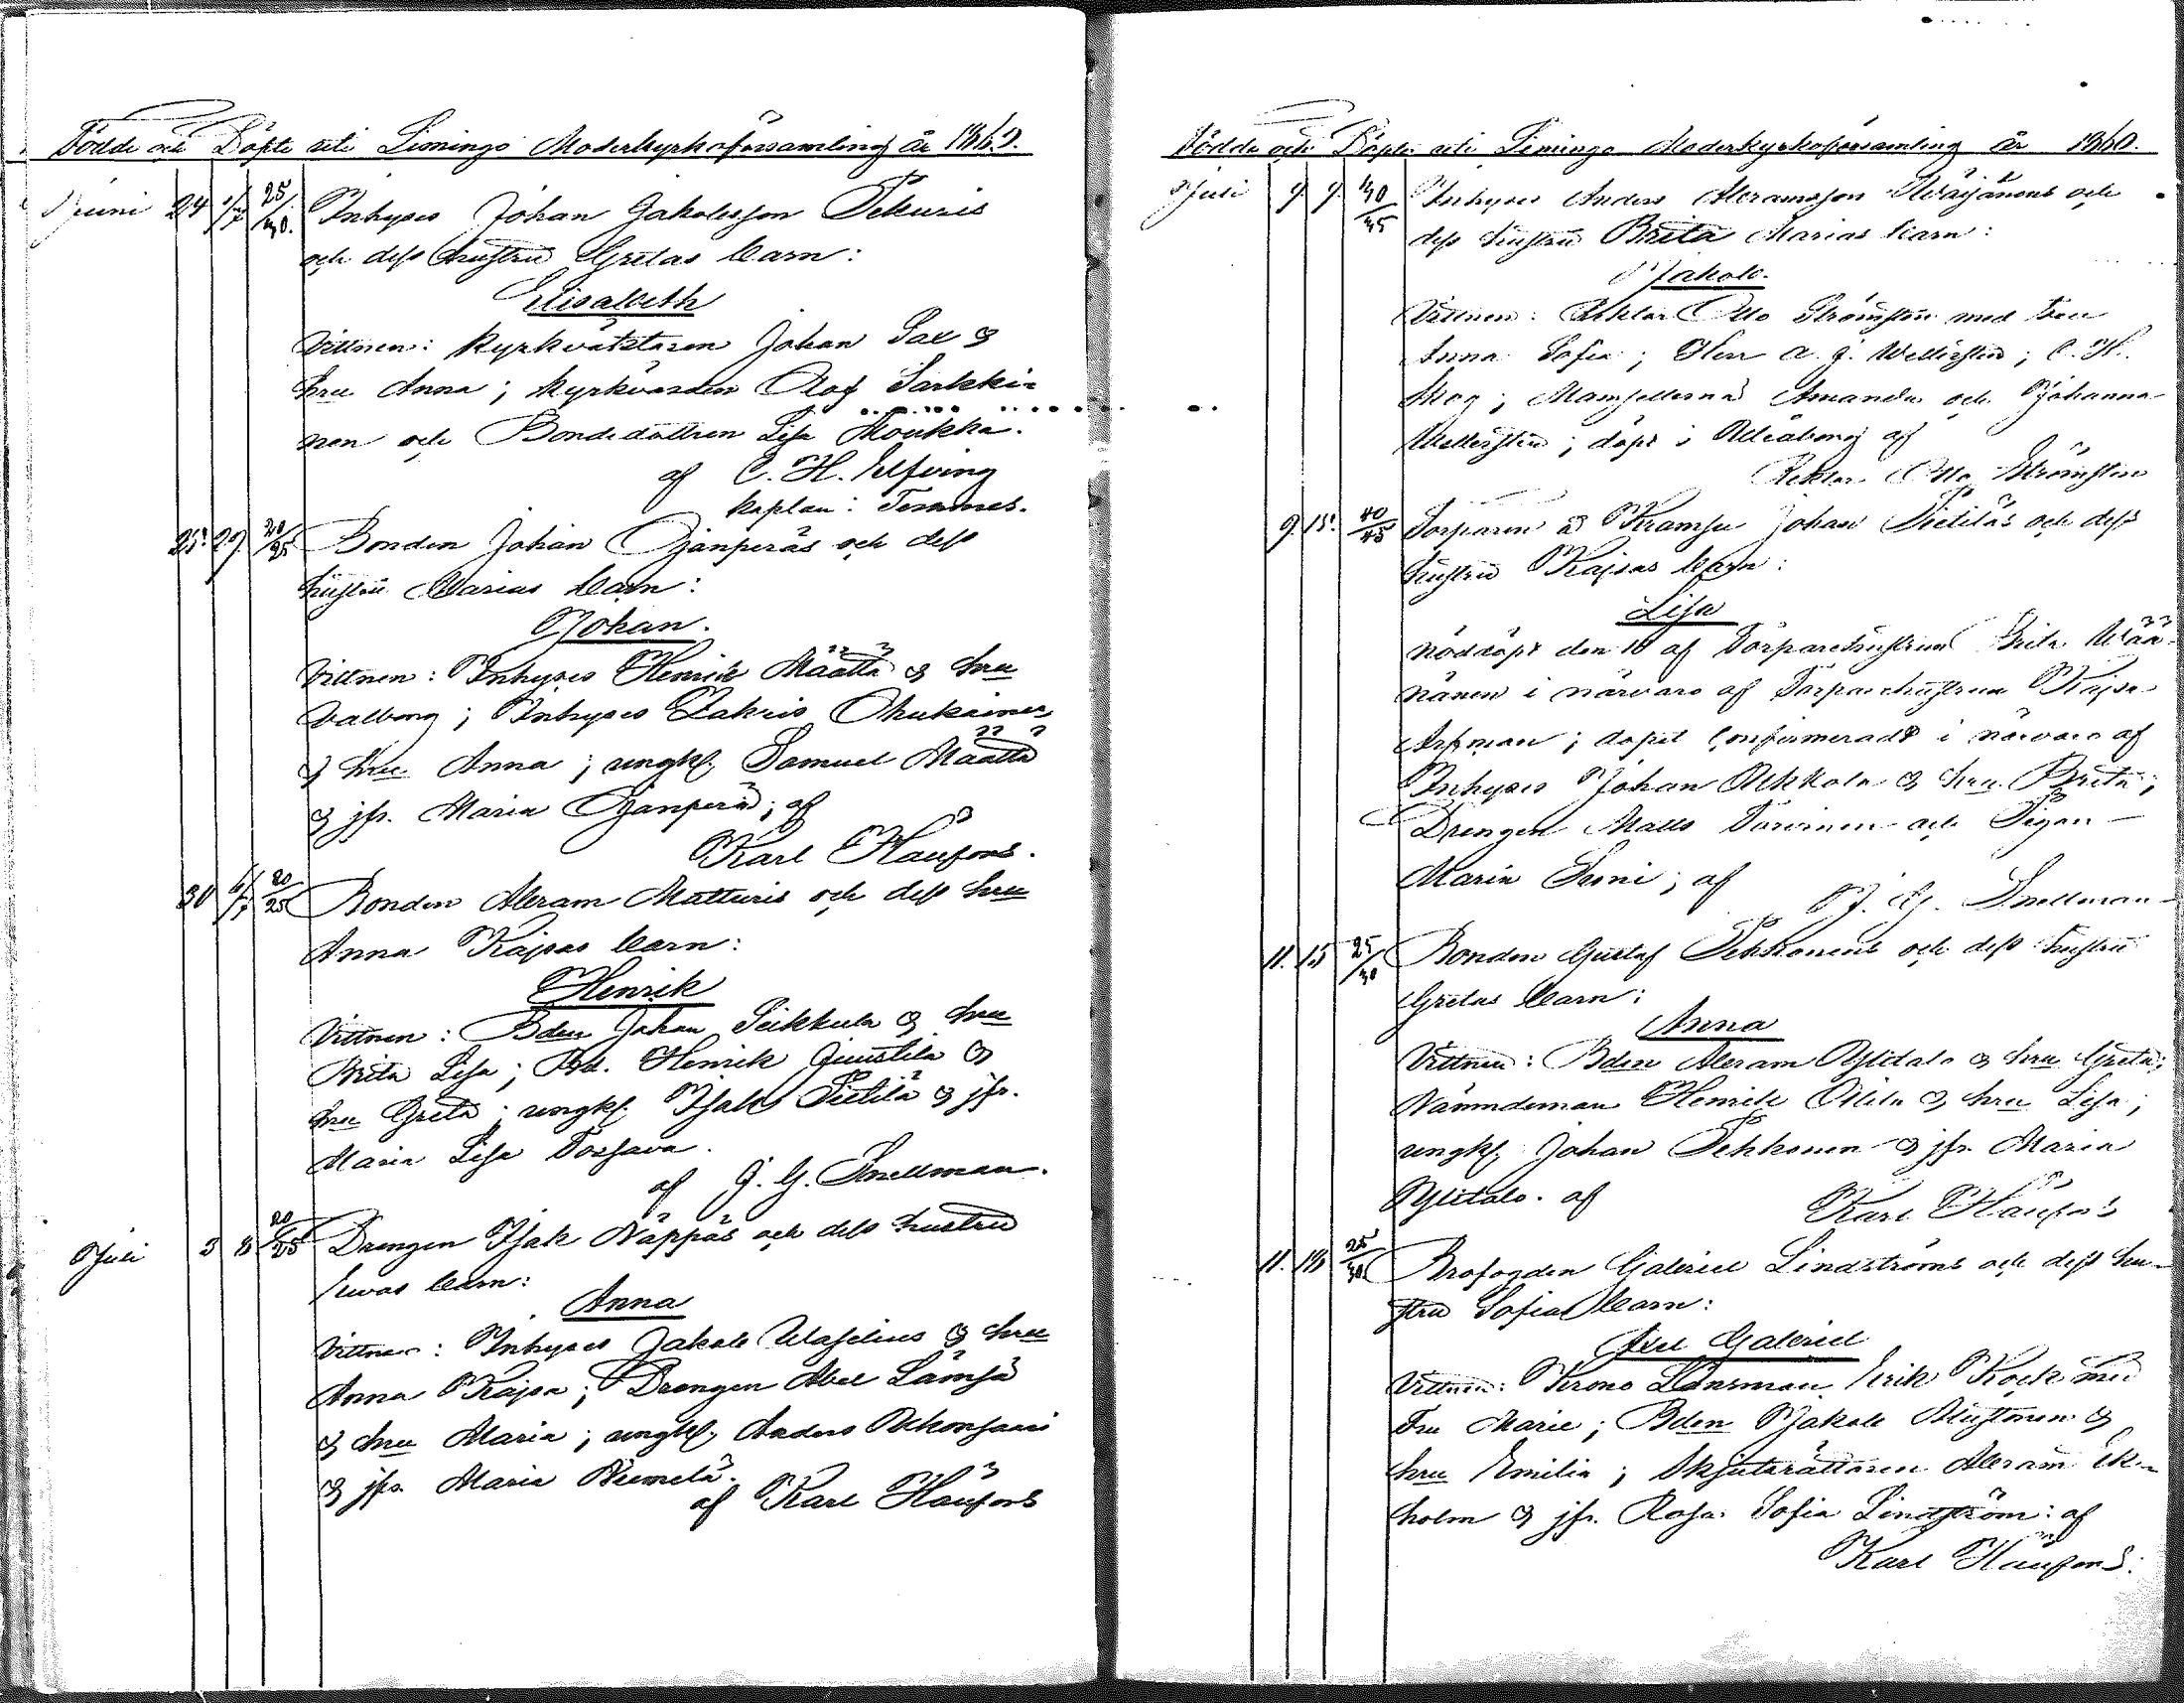 Födde och Döpte uti Limingo Moderkyrkoförsamling år 1860.
Juni 24 1/7 25/30. Inhyses Johan Jakobsson Pekuris
och dess hustru Gretas barn:
Elisabeth
Vittnen: Kyrkvärden Johan Sax &
hru Anna; Kyrkvärden Olof Sarkki-
nen och Bondedottren Lisa Moukka.
af C. H. Elfving
kaplan i Temmes.
25. 29 20/25 Bonden Johan Ojanperäs och dess
hustru Marias barn:
Johan.
Vittnen: Inhyses Henrik Määttä & hru
Valborg; Inhyses Zakris Ohukainen
& hru Anna; ungkl. Samuel Määttä
& jfr. Maria Ojanperä; af
Karl Haufons.
30 1/7 20/25 Bonden Abram Matturis och dess hru
Anna Kajsas barn:
Henrik
Vittnen: Bden Johan Seikkula & hru
Brita Lisa; Bd. Henrik Juustila &
hru Greta; ungkl. Isak Pietilä & jfr.
Maria Lisa Torfava.
af J. G. Snellman.
Juli 3 8 20/25 Drengen Isak Näppäs och dess hustru
Evas barn:
Anna
Vittnen: Inhyses Jakob Wafelius & hru
Anna Kajsa; Drengen Abel Lämsä
& hru Maria; ungkl. Anders
& jfr. Maria Niemelä.
af Karl Haufons
Födde och Döpte uti Limingo Moderkyrkoförsamling år 1860.
Juli 9 9 40/45 Inhyses Anders Abramsson Väyränens och
dess hustru Brita Marias barn:
Jakob.
Vittnen: Rektor Otto Strömsten med fru
Anna Sofia; Herr A. J. Wellersten; C. H.
Skog; Mamsellerna Amanda och Johanna
Wellersten; döpt i Uleåborg af
Rektor Otto Strömsten
9. 15. 40/45 Torparen å Kramsu Johan Pietiläs och dess
hustru Kajsas barn:
Lisa
nöddöpt den 10 af Torparehustrun Brita Wää-
nänen i närvaro af Torparehustrun Kajsa
; dopet confirmeradt i närvaro af
Inhyses Johan Ukkola & hru Brita;
Drengen Matts Torvinen och Pigan
Maria Suni; af
J. G. Snellman
11. 15 25/30 Bonden Gustaf Pekkonens och dess hustru
Gretas barn:
Anna
Vittnen: Bden Abram Ylitalo & hru Greta;
Nämndeman Henrik Ollila & hru Lisa;
ungkl. Johan Pekkonen & jfr. Maria
Ylitalo. af
Karl Haufons
11. 18 25/30 Brofogden Gabriel Lindströms och dess hu-
stru Sofias barn:
Axel Gabriel
Vittnen: Krono Länsman Erik Kock med
Fru Marie; Bden Jakob Mustonen &
hru Emilia; Skjutsrättaren Abram Ek-
holm & jfr. Rosa Sofia Lindström: af
Karl Haufons.